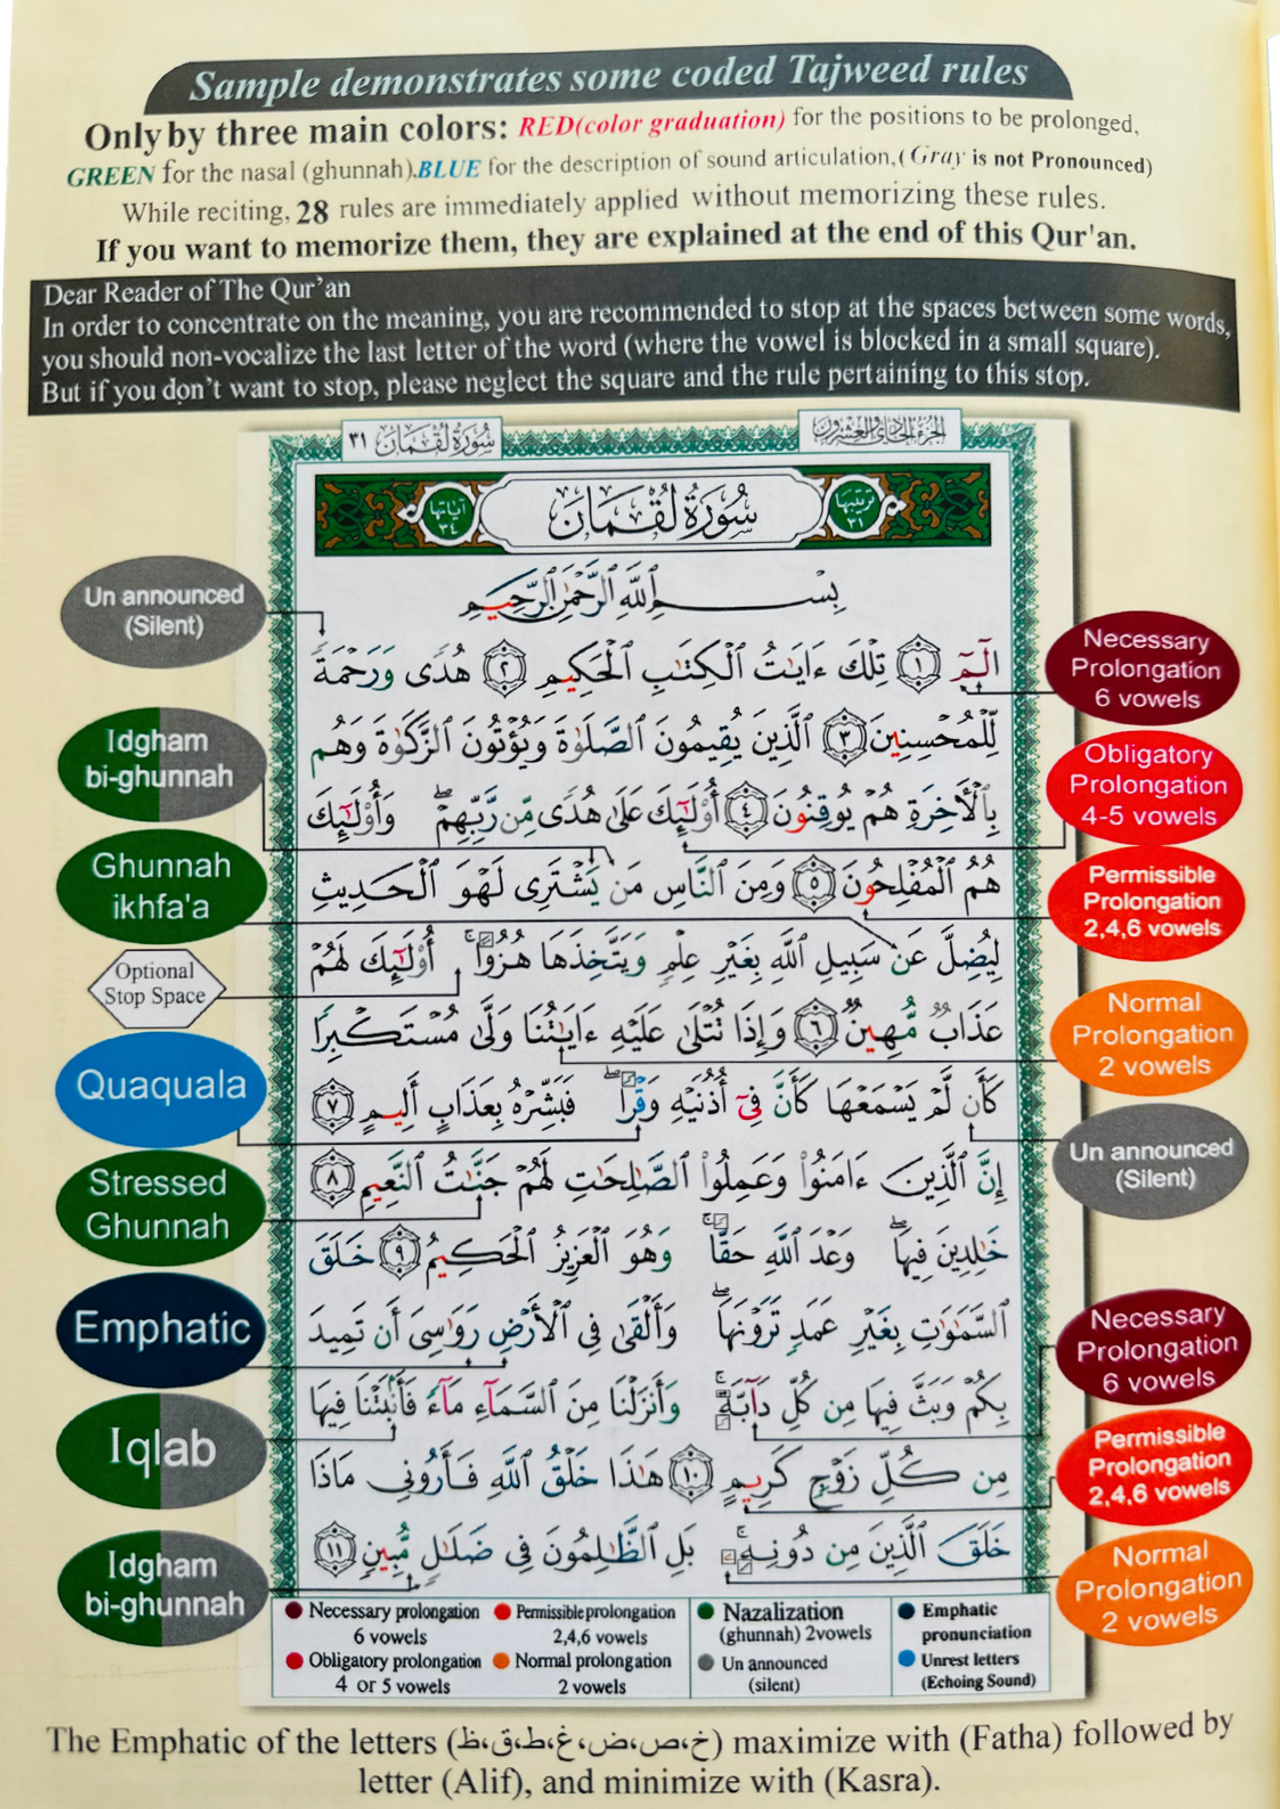 Sample demonstrates some coded Tajweed rules
Only by three main colors: RED(color graduation) for the positions to be prolonged,
GREEN for the nasal (ghunnah).BLUE for the description of sound articulation,( Gray is not Pronounced)
While reciting, 28 rules are immediately applied without memorizing these rules.
If you want to memorize them, they are explained at the end of this Qur'an.
Dear Reader of The Qur'an
In order to concentrate on the meaning, you are recommended to stop at the spaces between some words,
you should non-vocalize the last letter of the word (where the vowel is blocked in a small square).
But if you don't want to stop, please neglect the square and the rule pertaining to this stop.
الجزء الحادي والعشرون
سورة لقمان ٣١
ترتيبها ٣١
سورة لقمان
آياتها ٣٤
بِسْمِ ٱللَّهِ ٱلرَّحْمَٰنِ ٱلرَّحِيمِ
الٓمٓ ١ تِلْكَ ءَايَٰتُ ٱلْكِتَٰبِ ٱلْحَكِيمِ ٢ هُدًى وَرَحْمَةً
لِّلْمُحْسِنِينَ ٣ ٱلَّذِينَ يُقِيمُونَ ٱلصَّلَوٰةَ وَيُؤْتُونَ ٱلزَّكَوٰةَ وَهُم
بِٱلْأَخِرَةِ هُمْ يُوقِنُونَ ٤ أُوْلَٰٓئِكَ عَلَىٰ هُدًى مِّن رَّبِّهِمْ ۖ وَأُوْلَٰٓئِكَ
هُمُ ٱلْمُفْلِحُونَ ٥ وَمِنَ ٱلنَّاسِ مَن يَشْتَرِى لَهْوَ ٱلْحَدِيثِ
لِيُضِلَّ عَن سَبِيلِ ٱللَّهِ بِغَيْرِ عِلْمٍ وَيَتَّخِذَهَا هُزُوًا ۚ أُوْلَٰٓئِكَ لَهُمْ
عَذَابٌ مُّهِينٌ ٦ وَإِذَا تُتْلَىٰ عَلَيْهِ ءَايَٰتُنَا وَلَّىٰ مُسْتَكْبِرًا
كَأَن لَّمْ يَسْمَعْهَا كَأَنَّ فِىٓ أُذُنَيْهِ وَقْرًا ۖ فَبَشِّرْهُ بِعَذَابٍ أَلِيمٍ ٧
إِنَّ ٱلَّذِينَ ءَامَنُوا۟ وَعَمِلُوا۟ ٱلصَّٰلِحَٰتِ لَهُمْ جَنَّٰتُ ٱلنَّعِيمِ ٨
خَٰلِدِينَ فِيهَا ۖ وَعْدَ ٱللَّهِ حَقًّا ۚ وَهُوَ ٱلْعَزِيزُ ٱلْحَكِيمُ ٩ خَلَقَ
ٱلسَّمَٰوَٰتِ بِغَيْرِ عَمَدٍ تَرَوْنَهَا ۖ وَأَلْقَىٰ فِى ٱلْأَرْضِ رَوَٰسِىَ أَن تَمِيدَ
بِكُمْ وَبَثَّ فِيهَا مِن كُلِّ دَآبَّةٍ ۚ وَأَنزَلْنَا مِنَ ٱلسَّمَآءِ مَآءً فَأَنۢبَتْنَا فِيهَا
مِن كُلِّ زَوْجٍ كَرِيمٍ ١٠ هَٰذَا خَلْقُ ٱللَّهِ فَأَرُونِى مَاذَا
خَلَقَ ٱلَّذِينَ مِن دُونِهِ ۚ بَلِ ٱلظَّٰلِمُونَ فِى ضَلَٰلٍ مُّبِينٍ ١١
Un announced
(Silent)
Idgham
bi-ghunnah
Ghunnah
ikhfa'a
Optional
Stop Space
Quaquala
Stressed
Ghunnah
Emphatic
Iqlab
Idgham
bi-ghunnah
Necessary
Prolongation
6 vowels
Obligatory
Prolongation
4-5 vowels
Permissible
Prolongation
2,4,6 vowels
Normal
Prolongation
2 vowels
Un announced
(Silent)
Necessary
Prolongation
6 vowels
Permissible
Prolongation
2,4,6 vowels
Normal
Prolongation
2 vowels
Necessary prolongation
6 vowels
Permissible prolongation
2,4,6 vowels
Nazalization
(ghunnah) 2vowels
Emphatic
pronunciation
Obligatory prolongation
4 or 5 vowels
Normal prolongation
2 vowels
Un announced
(silent)
Unrest letters
(Echoing Sound)
The Emphatic of the letters (خ،ص،ض،غ،ط،ق،ظ) maximize with (Fatha) followed by
letter (Alif), and minimize with (Kasra).